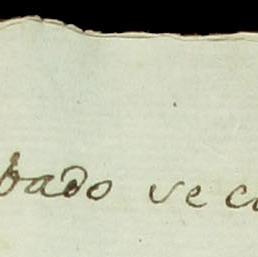 bado se c